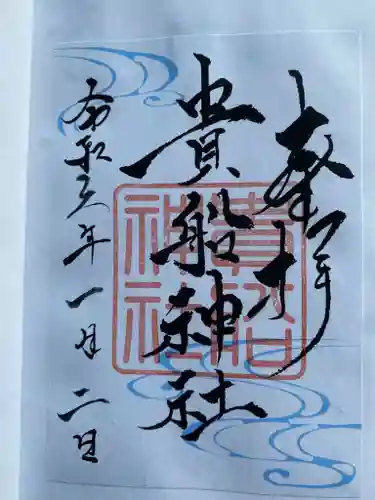 奉拝
貴船神社
貴船
神社
令和六年一月二日